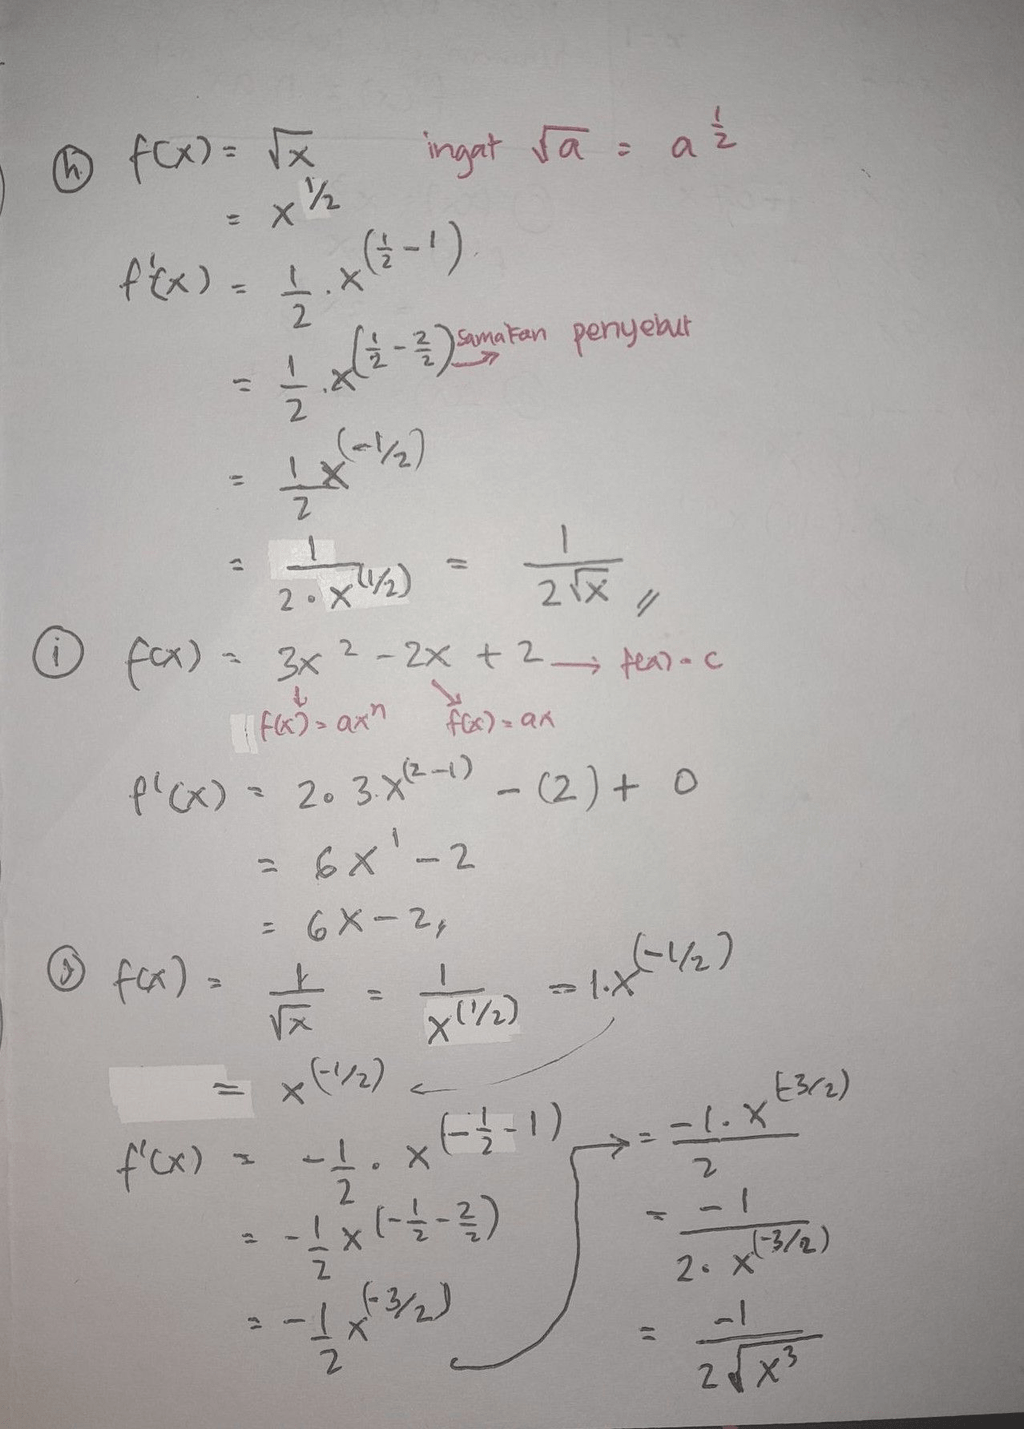 (h) f(x) = √x ingat √a = a^(1/2)
= x^(1/2)
f'(x) = 1/2 . x^(1/2 - 1)
= 1/2 . x^(1/2 - 2/2) → samakan penyebut
= 1/2 x^(-1/2)
= 1/(2 • x^(1/2)) = 1/(2√x) //
(i) f(x) = 3x^2 - 2x + 2 → f(x) = c
↓ f(x) = ax^n ↘ f(x) = ax
f'(x) = 2 • 3.x^(2-1) - (2) + 0
= 6x^1 - 2
= 6x - 2,
(j) f(x) = 1/√x = 1/x^(1/2) = 1.x^(-1/2)
= x^(-1/2) ←
f'(x) = -1/2 • x^(-1/2 - 1)
= -1/2 x^(-1/2 - 2/2)
= -1/2 x^(-3/2)
→ = (-1 . x^(-3/2))/2
= -1/(2 • x^(-3/2))
= -1/(2√x^3)